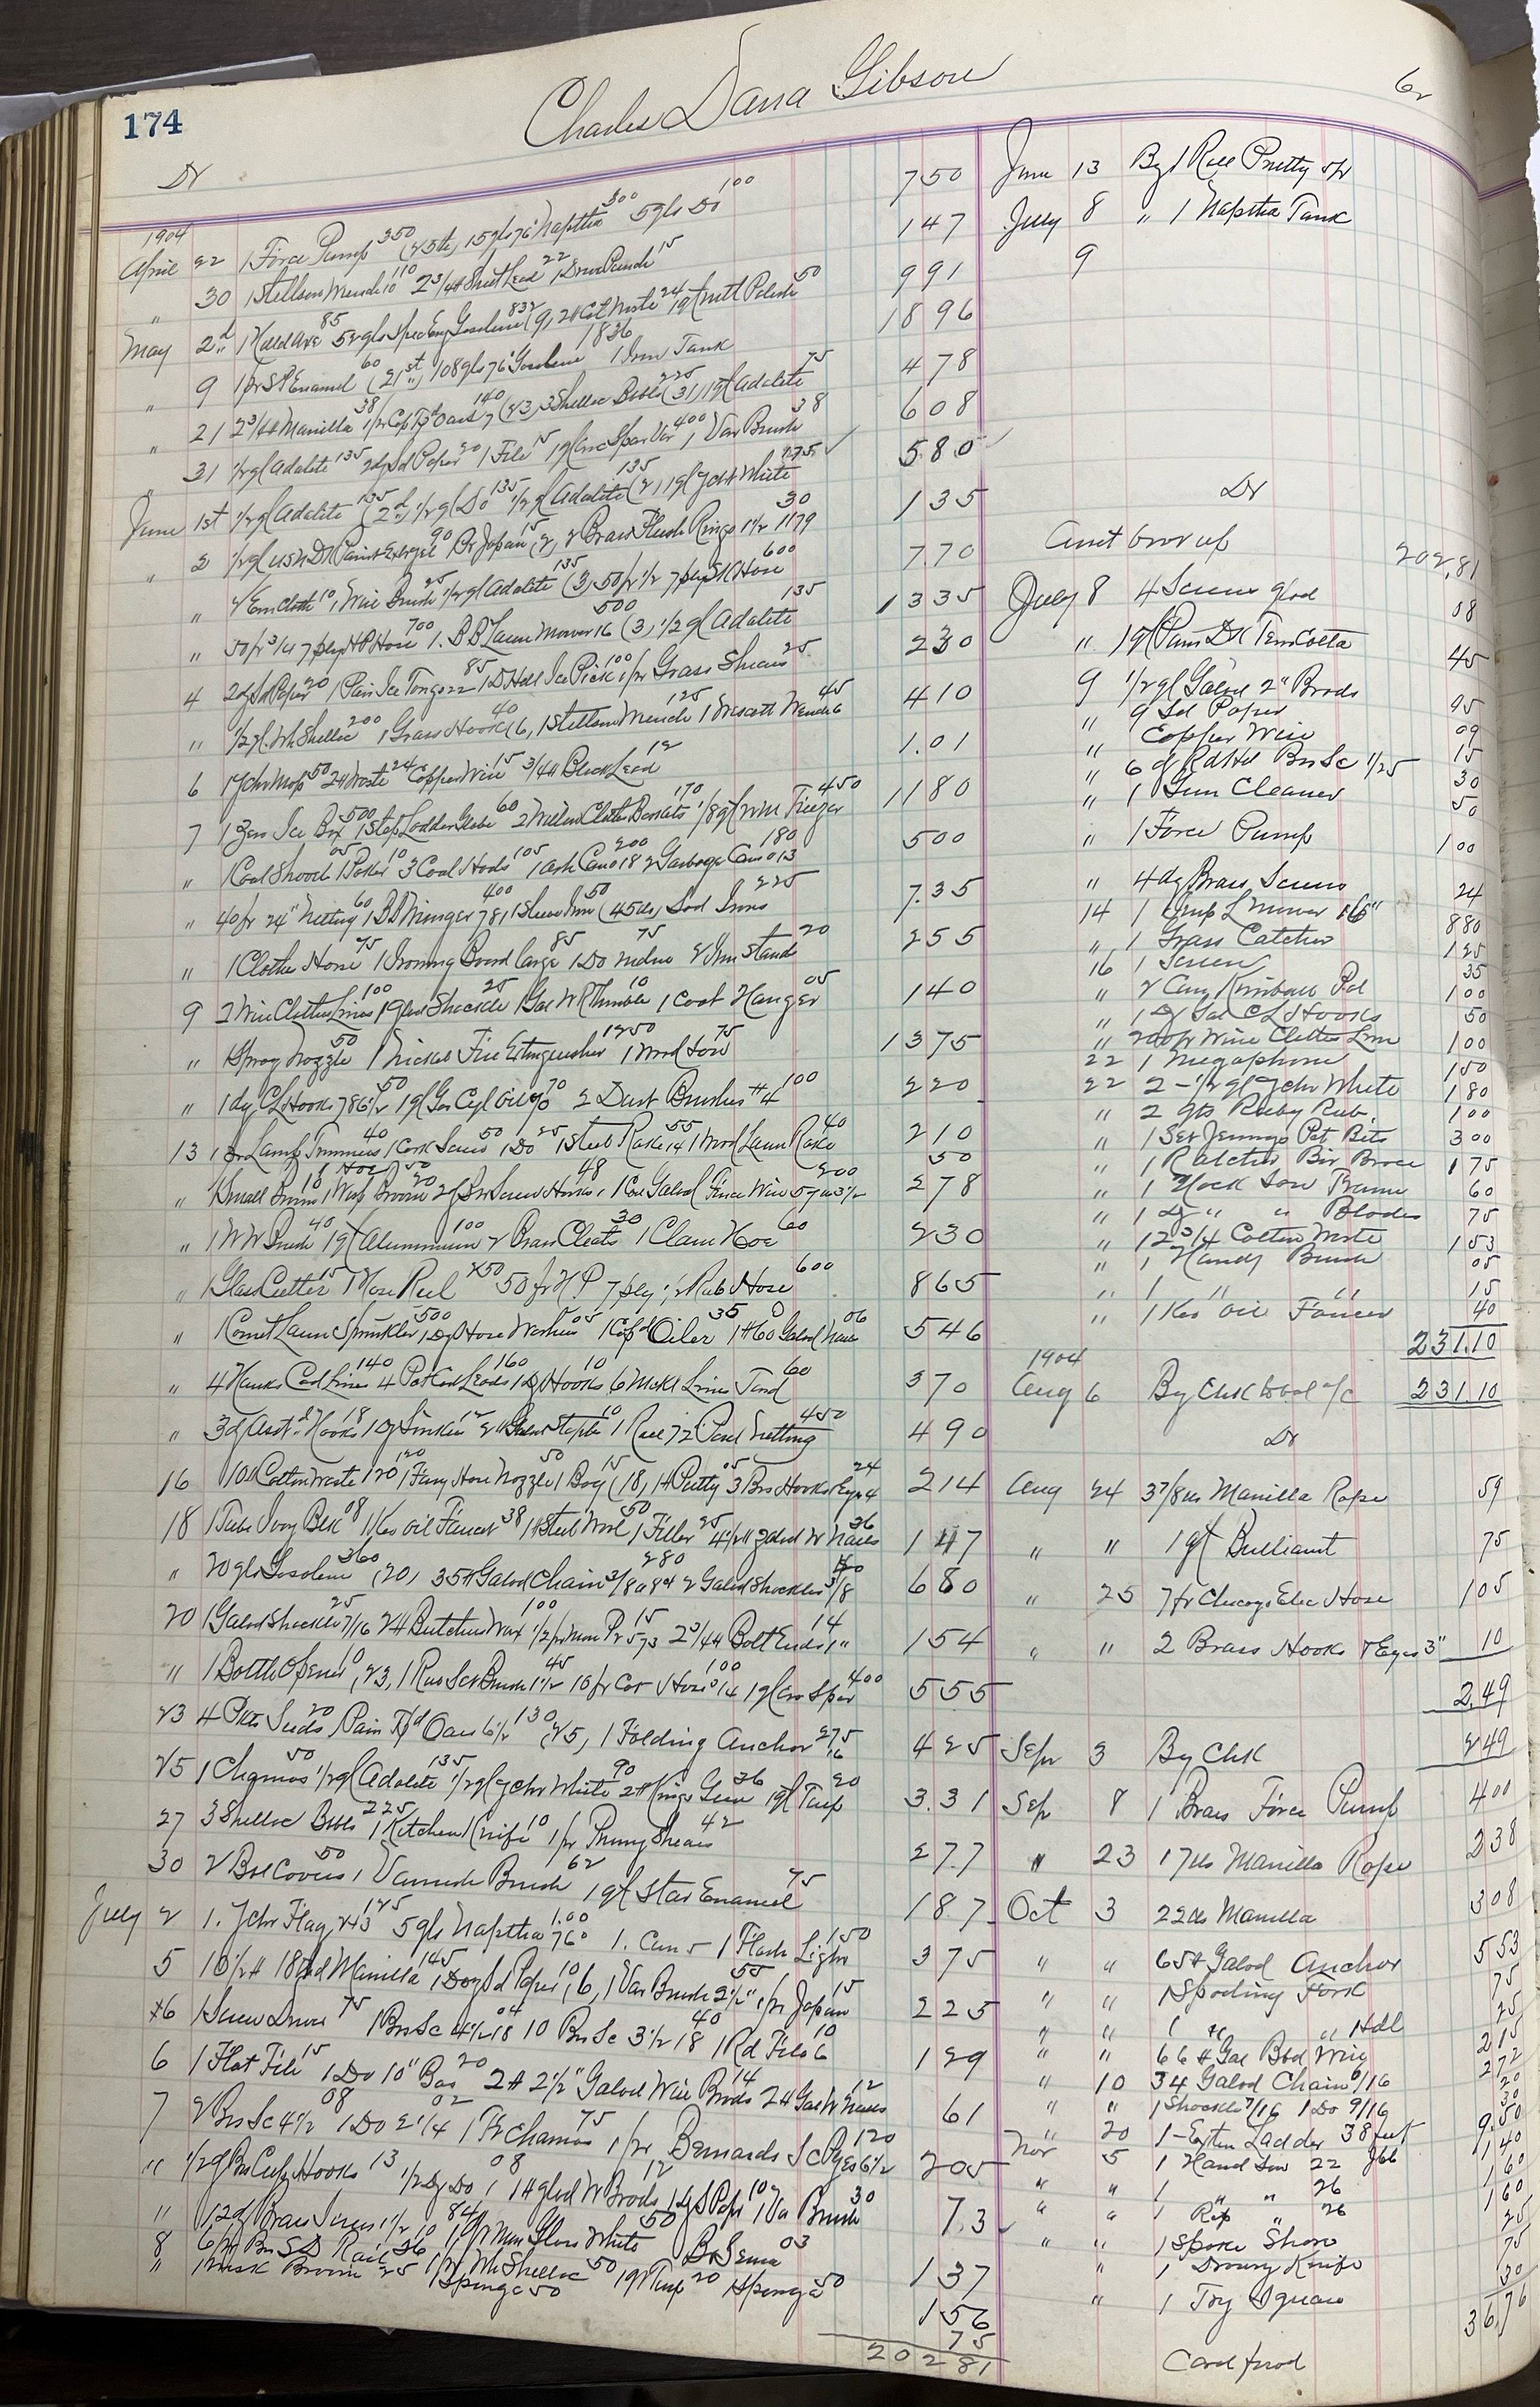 174
Charles Dana Gibson
Dr
1904
April 22 1 Force Pump 350 (25th) 15 gls 76° Naptha 300 5 gls Do 100 750
" 30 1 Stillson Wrench 10 110 2 3/4# Sheet Lead 22 1 Drive Punch 15 147
May 2d 1 Axe 85 52 gls Gasolene 832 (9) 2# Cot Waste 24 1 qt Polish 50 991
" 9 1 pr S P Enamel 60 (21st) 108 gls 76° Gasolene 1836 1 Iron Tank 1896
" 21 2 3/4# Manilla 38 1 pr Cop Tpd Oars 7 140 (23) 3 Shellac Bbls 225 (31) 1 qt Adalite 75 478
" 31 1/2 gl Adalite 135 2 dz Sd Paper 20 1 File 15 1 gl Spar Var 400 1 Var Brush 38 608
June 1st 1/2 gl Adalite 135 (2d) 1/2 gl Do 135 1/2 gl Adalite 135 (2) 1 gl Ycht White 175 580
" 2 1/2 gl Paint 90 Pt Japan 15 (2) 2 Brass Flush Rings 1 1/2 1179 30 135
" 2 Em Cloth 10 1 Wire Brush 25 1/2 gl Adalite 135 (3) 50 ft 1/2 7 ply Hose 600 770
" 50 ft 3/4 7 ply H P Hose 700 1 B B Lawn Mower 16 500 (3) 1/2 gl Adalite 135 1335
4 2 dz Sd Paper 20 1 Pair Ice Tongs 22 85 1 D Hdl Ice Pick 100 1 pr Grass Shears 25 230
" 1/2 gl Wh Shellac 200 1 Grass Hook 40 (6) 1 Stillson Wrench 125 1 Wescott Wrench 6 45 410
6 1 Ycht Mop 50 2# Waste 24 Copper Wire 15 3/4# Black Lead 12 1.01
7 1 Zero Ice Box 500 1 Step Ladder 60 2 Willow Clothes Baskets 170 1 8 qt Freezer 450 1180
" 1 Coal Shovel 05 1 Poker 10 3 Coal Hods 105 1 Ash Can 18 200 2 Garbage Cans 13 180 500
" 40 ft 24" Netting 60 1 Wringer 781 400 1 Sleeve Iron 50 (4 Sets) Sad Irons 225 7.35
" 1 Clothes Horse 75 1 Ironing Board large 85 1 Do medm 75 2 Iron Stands 20 255
9 2 Wire Clothes Lines 100 1 Galvd Shackle 25 1 Gal W R Thimble 10 1 Coat Hanger 05 140
" 1 Spray Nozzle 50 1 Nickel Fire Extinguisher 1250 1 Wood Saw 75 1375
" 1 dz C L Hooks 786 1/2 50 1 gl Gas Cyl Oil 70 2 Dust Brushes #4 100 220
13 1 pr Lamp Trimmers 40 1 Cork Screw 50 1 Do 25 1 Steel Rake 14 55 1 Wood Lawn Rake 40 210
1 Hoe 50 50
" 1 Small Broom 10 1 Whisp Broom 20 2 dz Screw Hooks 48 1 Coil Galvd Fence Wire 200 278
" 1 W W Brush 40 1 qt Aluminium 100 2 Brass Cleats 30 1 Clam Hoe 60 230
" 1 Glass Cutter 15 1 Hose Reel 250 50 ft H P 7 ply 1/2 Rub Hose 600 865
" 1 Comet Lawn Sprinkler 500 1 Dz Hose Washers 05 1 Copd Oiler 35 1# 60 Galvd Nails 06 546
" 4 Hanks Cod Line 140 4 Pat Cod Leads 160 1 Dz Hooks 10 6 Mckl Lines Tard 60 370
" 3 dz Asst. Hooks 18 1 Dz Sinkers 12 2# Galvd Staples 10 1 Roll 72 Poul Netting 450 490
16 10# Cotton Waste 120 1 Fairy Hose Nozzle 50 1 Bag 15 (18) 1# Putty 05 3 Brs Hooks & Eyes 4 24 214
18 1 Tube Ivory Blk 08 1 Kero Oil Faucet 38 1# Steel Wool 50 1 Filler 25 4 1/2# Galvd W Nails 26 147
" 20 gls Gasolene 360 (20) 35# Galvd Chain 3/8 a 8¢ 280 2 Galvd Shackles 3/8 40 680
20 1 Galvd Shackle 7/16 25 2# Butchers Wax 100 1/2 pt 573 15 2 3/4# Bolt Ends 1" 14 154
" 1 Bottle Opener 10 (23) 1 Brush 1 1/2 45 10 ft Cot Hose 3/4 100 1 gl Spar 400 555
23 4 Pkts Seeds 20 1 Pair Tpd Oars 6 1/2 130 (25) 1 Folding Anchor 16 275 425
25 1 Chamois 50 1/2 gl Adalite 135 1/2 gl Ycht White 90 2# Kings Gum 36 1 qt Turp 20 3.31
27 3 Shellac Bbls 225 1 Kitchen Knife 10 1 pr Prung Shears 42 277
30 2 Bbl Covers 50 1 Varnish Brush 62 1 qt Star Enamel 75 187
July 2 1 Ycht Flag 2x3 125 5 gls Naptha 76° 1.00 1 Can 5 1 Flash Light 150 375
5 10 1/2# 18 thd Manilla 145 1 Doz Sd Paper 10 (6) 1 Var Brush 2 1/2" 55 1 pt Japan 15 225
6 1 Screw Driver 75 1 Brs Sc 4 1/2 18 04 10 Brs Sc 3 1/2 18 40 1 Rd File 6 10 129
6 1 Flat File 15 1 Do 10" Bas 20 2# 2 1/2" Galvd Wire Brads 14 2# Gal W Nails 12 61
7 2 Brs Sc 4 1/2 08 1 Do 2 1/4 02 1 Fr Chamois 75 1 pr Bernards Sc Plyes 6 1/2 120 205
" 1/2 g Brs Cup Hooks 13 1/2 Dz Do 08 1# glvd W Brads 12 1 dz S Paper 10 1 Va Brush 30 7.3
" 12 dz Brass Screws 1 1/2 84 1 pt Gloss White 50 Br Screw 03 137
8 6 ft Brs S D Rail 36 10 1 pt Wh Shellac 50 1 qt Turp 20 1 Sponge 50 156
" 1 Whisk Broom 25 1 Sponge 50 75
20281
Cr
June 13 By 1 Roll Pnetty
July 8 " 1 Naptha Tank
9
Dr
Amt brot up 202.81
July 8 4 Screws glvd 08
" 1 qt Paint Dk Terra Cotta 45
9 1/2 gl Galvd 2" Brads 95
" 9 Sd Paper 09
" Copper Wire 15
" 6 d Rd Hd Brs Sc 1/25 30
" 1 Gun Cleaner 50
" 1 Force Pump 100
" 4 dz Brass Screws 24
14 1 Emp L Mower 16" 880
" 1 Grass Catcher 125
16 1 Screen 35
" 2 Cans Kimball Pol 100
" 1 Dz Gal C L Hooks 50
" 200 ft Wire Clothes Line 100
22 1 Megaphone 150
22 2 - 1/2 gl Ycht White 180
" 2 qts Ruby Rub. 100
" 1 Set Jenngs Pat Bits 300
" 1 Ratchet Bit Brace 175
" 1 Hack Saw Frame 60
" 1 Dz " " Blades 75
" 12 3/4 Cotton Waste 153
" 1 Handy Brush 05
" 1 " " 15
" 1 Kero Oil Faucet 40
231.10
1904
Aug 6 By Chk to bal a/c 231.10
Dr
Aug 24 3 7/8 lbs Manilla Rope 59
" " 1 qt Brilliant 75
" 25 7 ft Chicago Elec Hose 105
" " 2 Brass Hooks & Eyes 3" 10
2.49
Sepr 3 By Chk 249
Sep 8 1 Brass Force Pump 400
" 23 17 lbs Manilla Rope 238
Oct 3 22 lbs Manilla 308
" " 65# Galvd Anchor 553
" " 1 Spading Fork 75
" " 1 " " Hdl 25
" " 66# Gal Bbd Wire 215
" 10 34 Galvd Chain 5/16 272
" " 1 Shackle 7/16 20 1 Do 9/16 30
" 20 1 - Exten Ladder 38 feet 9.50
Nov 5 1 Hand Saw 22 J66 140
" " 1 " " 26 160
" " 1 Rip " 26 160
" " 1 Spoke Shave 25
1 Drawg Knife 75
" 1 Try Square 30
36.76
Card forwd